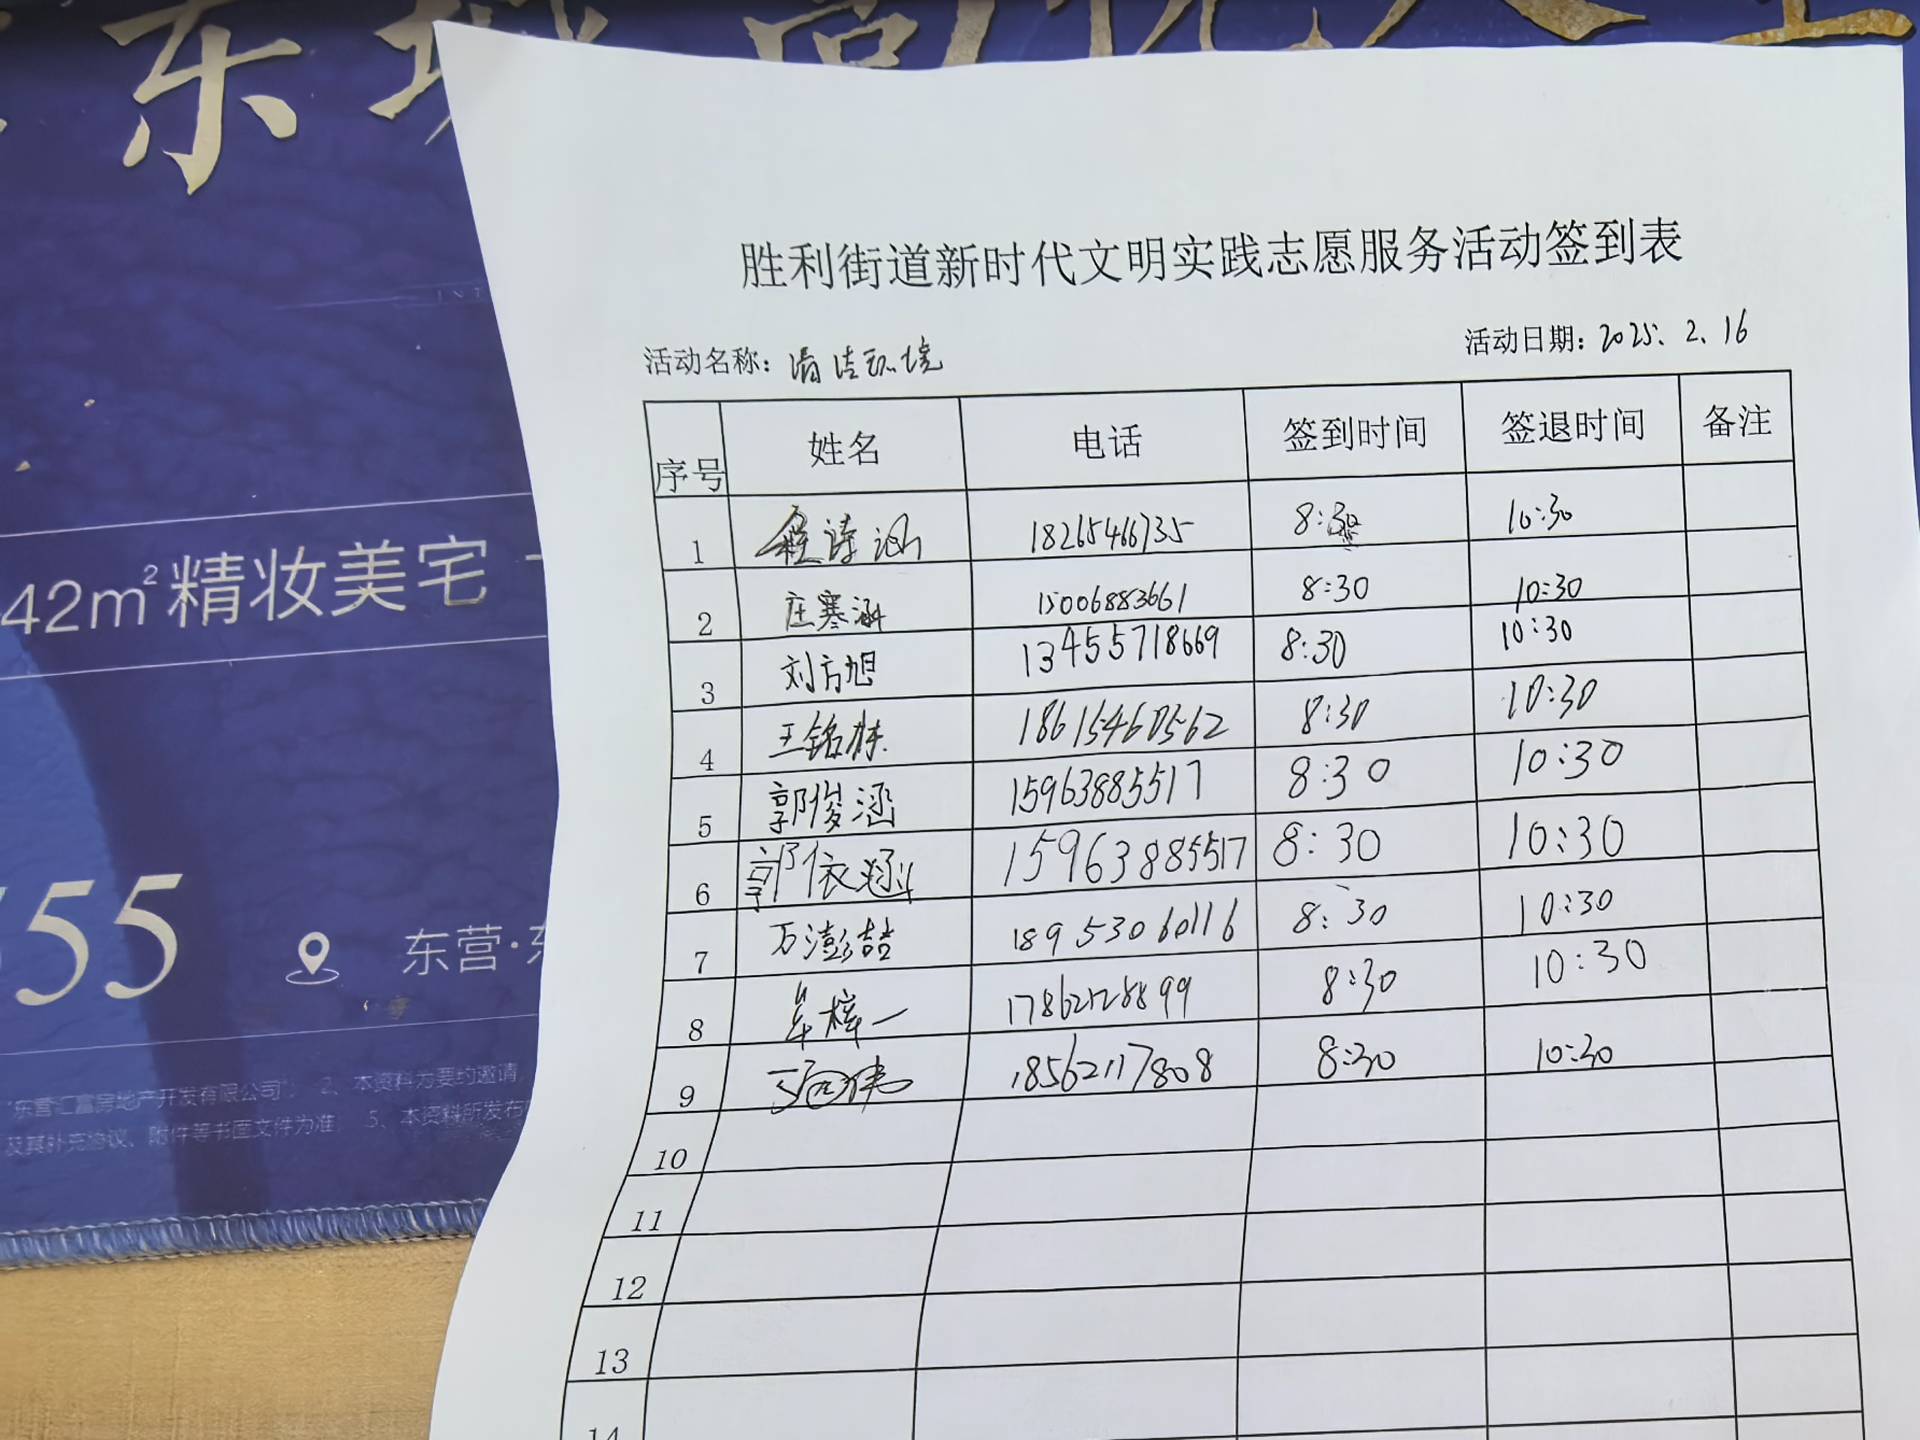 东城
42m²精妆美宅
55
东营·东
"东营汇富房地产开发有限公司"; 2、本资料为要约邀请,
及其补充协议、附件等书面文件为准 5、本资料所发布
胜利街道新时代文明实践志愿服务活动签到表
活动名称: 清洁环境
活动日期: 2025.2.16
序号 姓名 电话 签到时间 签退时间 备注
1 程诗涵 18265466735 8:30 10:30
2 庄寒涵 15006883661 8:30 10:30
3 刘方旭 13455718669 8:30 10:30
4 王铭栋 18615460562 8:30 10:30
5 郭俊涵 15963885517 8:30 10:30
6 郭依涵 15963885517 8:30 10:30
7 万澎喆 18953060116 8:30 10:30
8 牟梓一 17862128899 8:30 10:30
9 18562117808 8:30 10:30
10
11
12
13
14